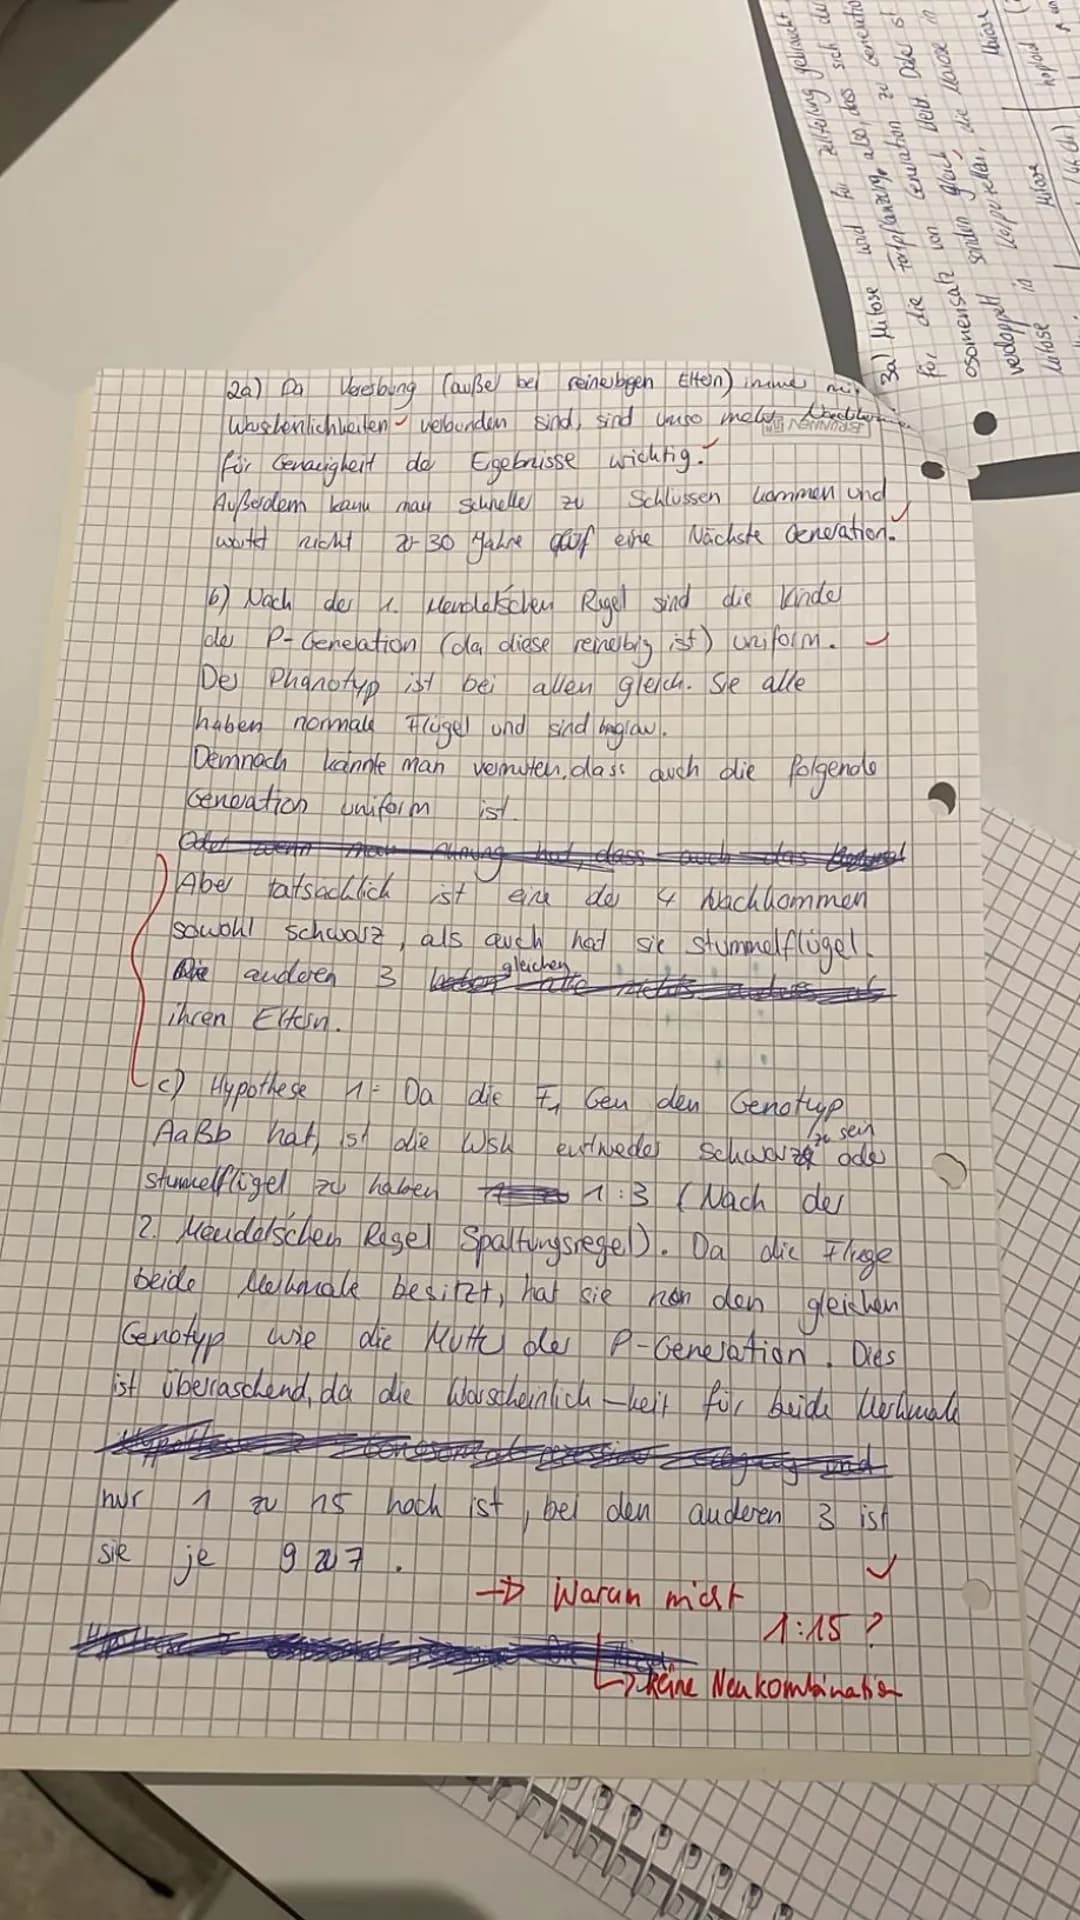 2a) Da Vererbung (außer bei reinerbigen Eltern) immer mit
Warscheinlichkeiten verbunden sind, sind umso mehr
BRUNNEN
für Genauigheit der Egebnisse wichtig.
Außerdem kann man schneller zu Schlüssen kommen und
wartet nicht 20-30 Jahre auf eine Nächste Generation.
b) Nach der 1. Mendelschen Regel sind die Kinder
der P-Generation (da diese reinerbig ist) uniform.
Der Phänotyp ist bei allen gleich. Sie alle
haben normale Flügel und sind
Demnach könnte man vermuten, dass auch die folgende
Generation uniform ist.
Oder wenn man Ahnung hat, dass auch das
Aber tatsächlich ist eine der 4 Nachkommen
sowohl schwarz, als auch hat sie stummelflügel.
gleichen
Die anderen 3 haben alle nichts anderes als
ihren Eltern.
c) Hypothese 1: Da die F1 Gen den Genotyp
AaBb hat, ist die Wsk entweder schwarz zu sein oder
stummelflügel zu haben 1:3 (Nach der
2. Mendelschen Regel Spaltungsregel). Da die Fliege
beide Merkmale besitzt, hat sie nun den gleichen
Genotyp wie die Mutter der P-Generation. Dies
ist überraschend, da die Warscheinlich-keit für beide Merkmale
nur 1 zu 15 hoch ist, bei den anderen 3 ist
sie je 9 zu 7.
→ Warum nicht
1:15?
↳ keine Neukombination
3a) Mitose wird für zellteilung gebraucht
für die Fortpflanzung, also, dass sich der
osomensatz von Generation zu Generatio
sondern gleich bleibt. Dabei ist
verdoppelt Körperzellen, die Meiose in
Mitose in
Mitose Meiose
haploid